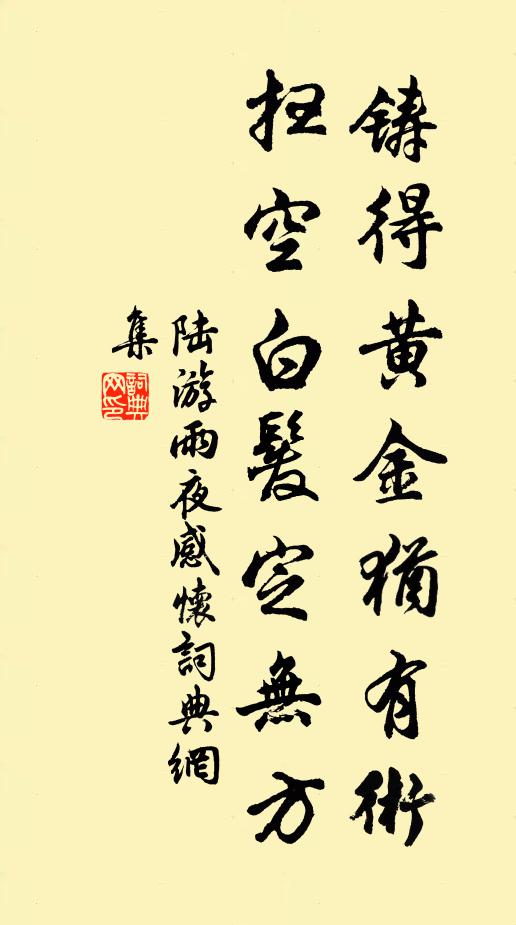 鑄得黃金猶有術
扭空白髮定無方
陸游雨夜感懷詞典網
集
詞典
网印